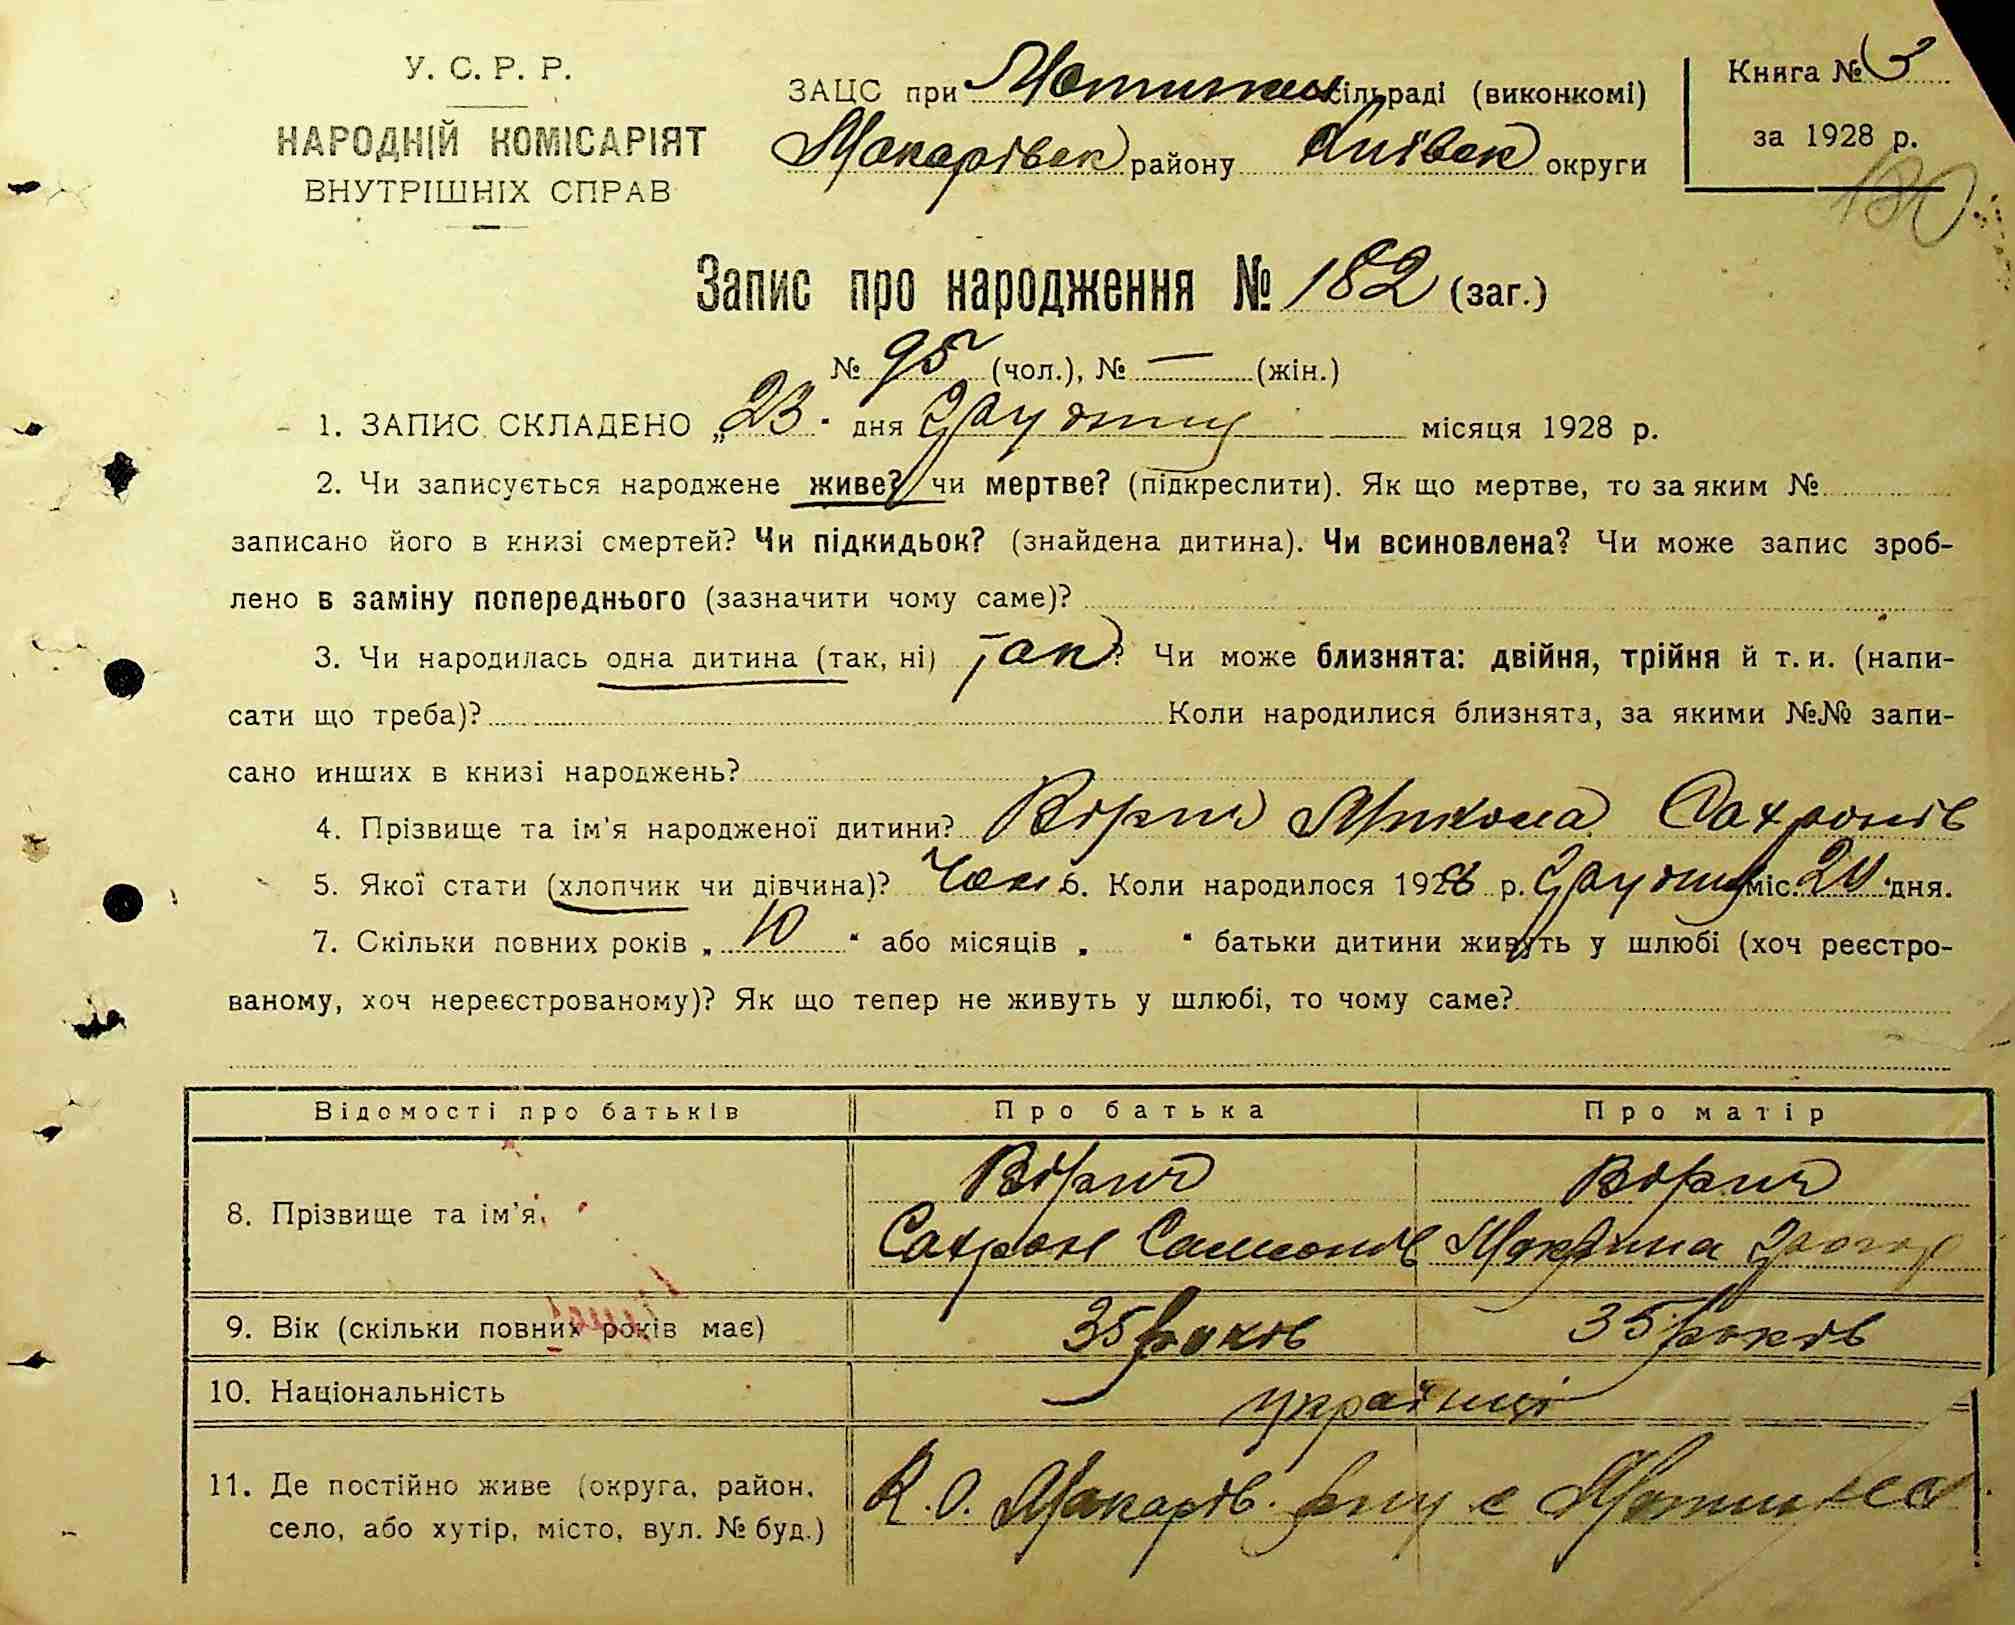 У. С. Р. Р.
НАРОДНІЙ КОМІСАРІЯТ
ВНУТРІШНІХ СПРАВ
ЗАЦС при сільраді (виконкомі)
Макарівск району Київск округи
Книга № 3
за 1928 р.
180
Запис про народження № 182 (заг.)
№ 95 (чол.), № — (жін.)
1. ЗАПИС СКЛАДЕНО „23" дня грудня місяця 1928 р.
2. Чи записується народжене живе? чи мертве? (підкреслити). Як що мертве, то за яким №
записано його в книзі смертей? Чи підкидьок? (знайдена дитина). Чи всиновлена? Чи може запис зроб-
лено в заміну попереднього (зазначити чому саме)?
3. Чи народилась одна дитина (так, ні) так? Чи може близнята: двійня, трійня й т. и. (напи-
сати що треба)? Коли народилися близнята, за якими №№ запи-
сано инших в книзі народжень?
4. Прізвище та ім'я народженої дитини? Вірич Микола Сахронів
5. Якої стати (хлопчик чи дівчина)? Чол. 6. Коли народилося 1928 р. Грудня міс. 20 дня.
7. Скільки повних років „10" або місяців „ " батьки дитини живуть у шлюбі (хоч реєстро-
ваному, хоч нереєстрованому)? Як що тепер не живуть у шлюбі, то чому саме?
Відомості про батьків Про батька Про матір
8. Прізвище та ім'я. Вірич Вірич
Сахрон Самсонів Мокрина Григор
9. Вік (скільки повних років має) 35 років 35 років
10. Національність українці
11. Де постійно живе (округа, район,
село, або хутір, місто, вул. № буд.)
К. О. Макарів. р-ну с